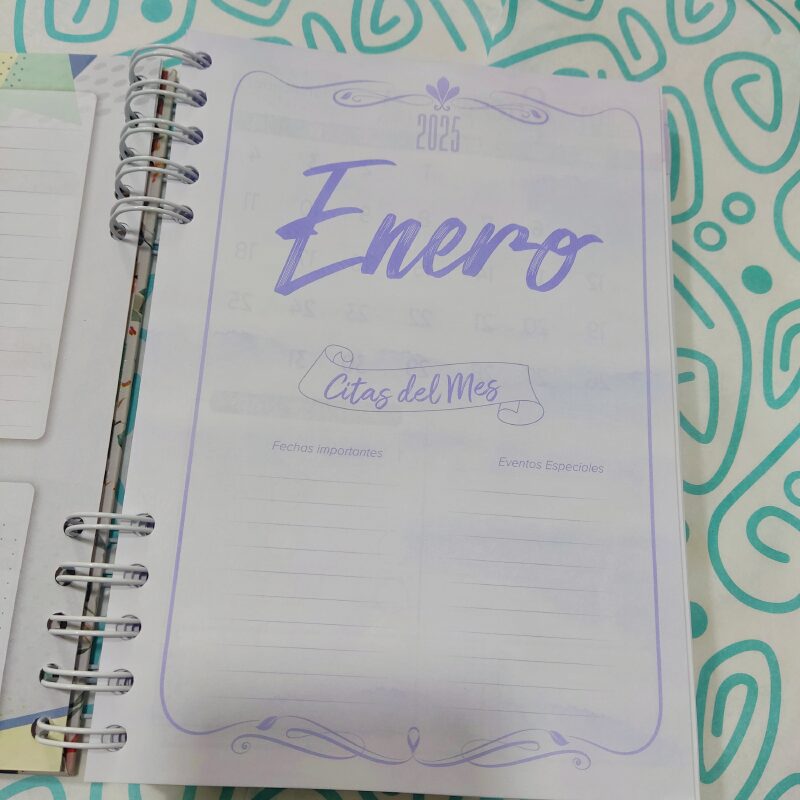 2025
Enero
Citas del Mes
Fechas importantes
Eventos Especiales